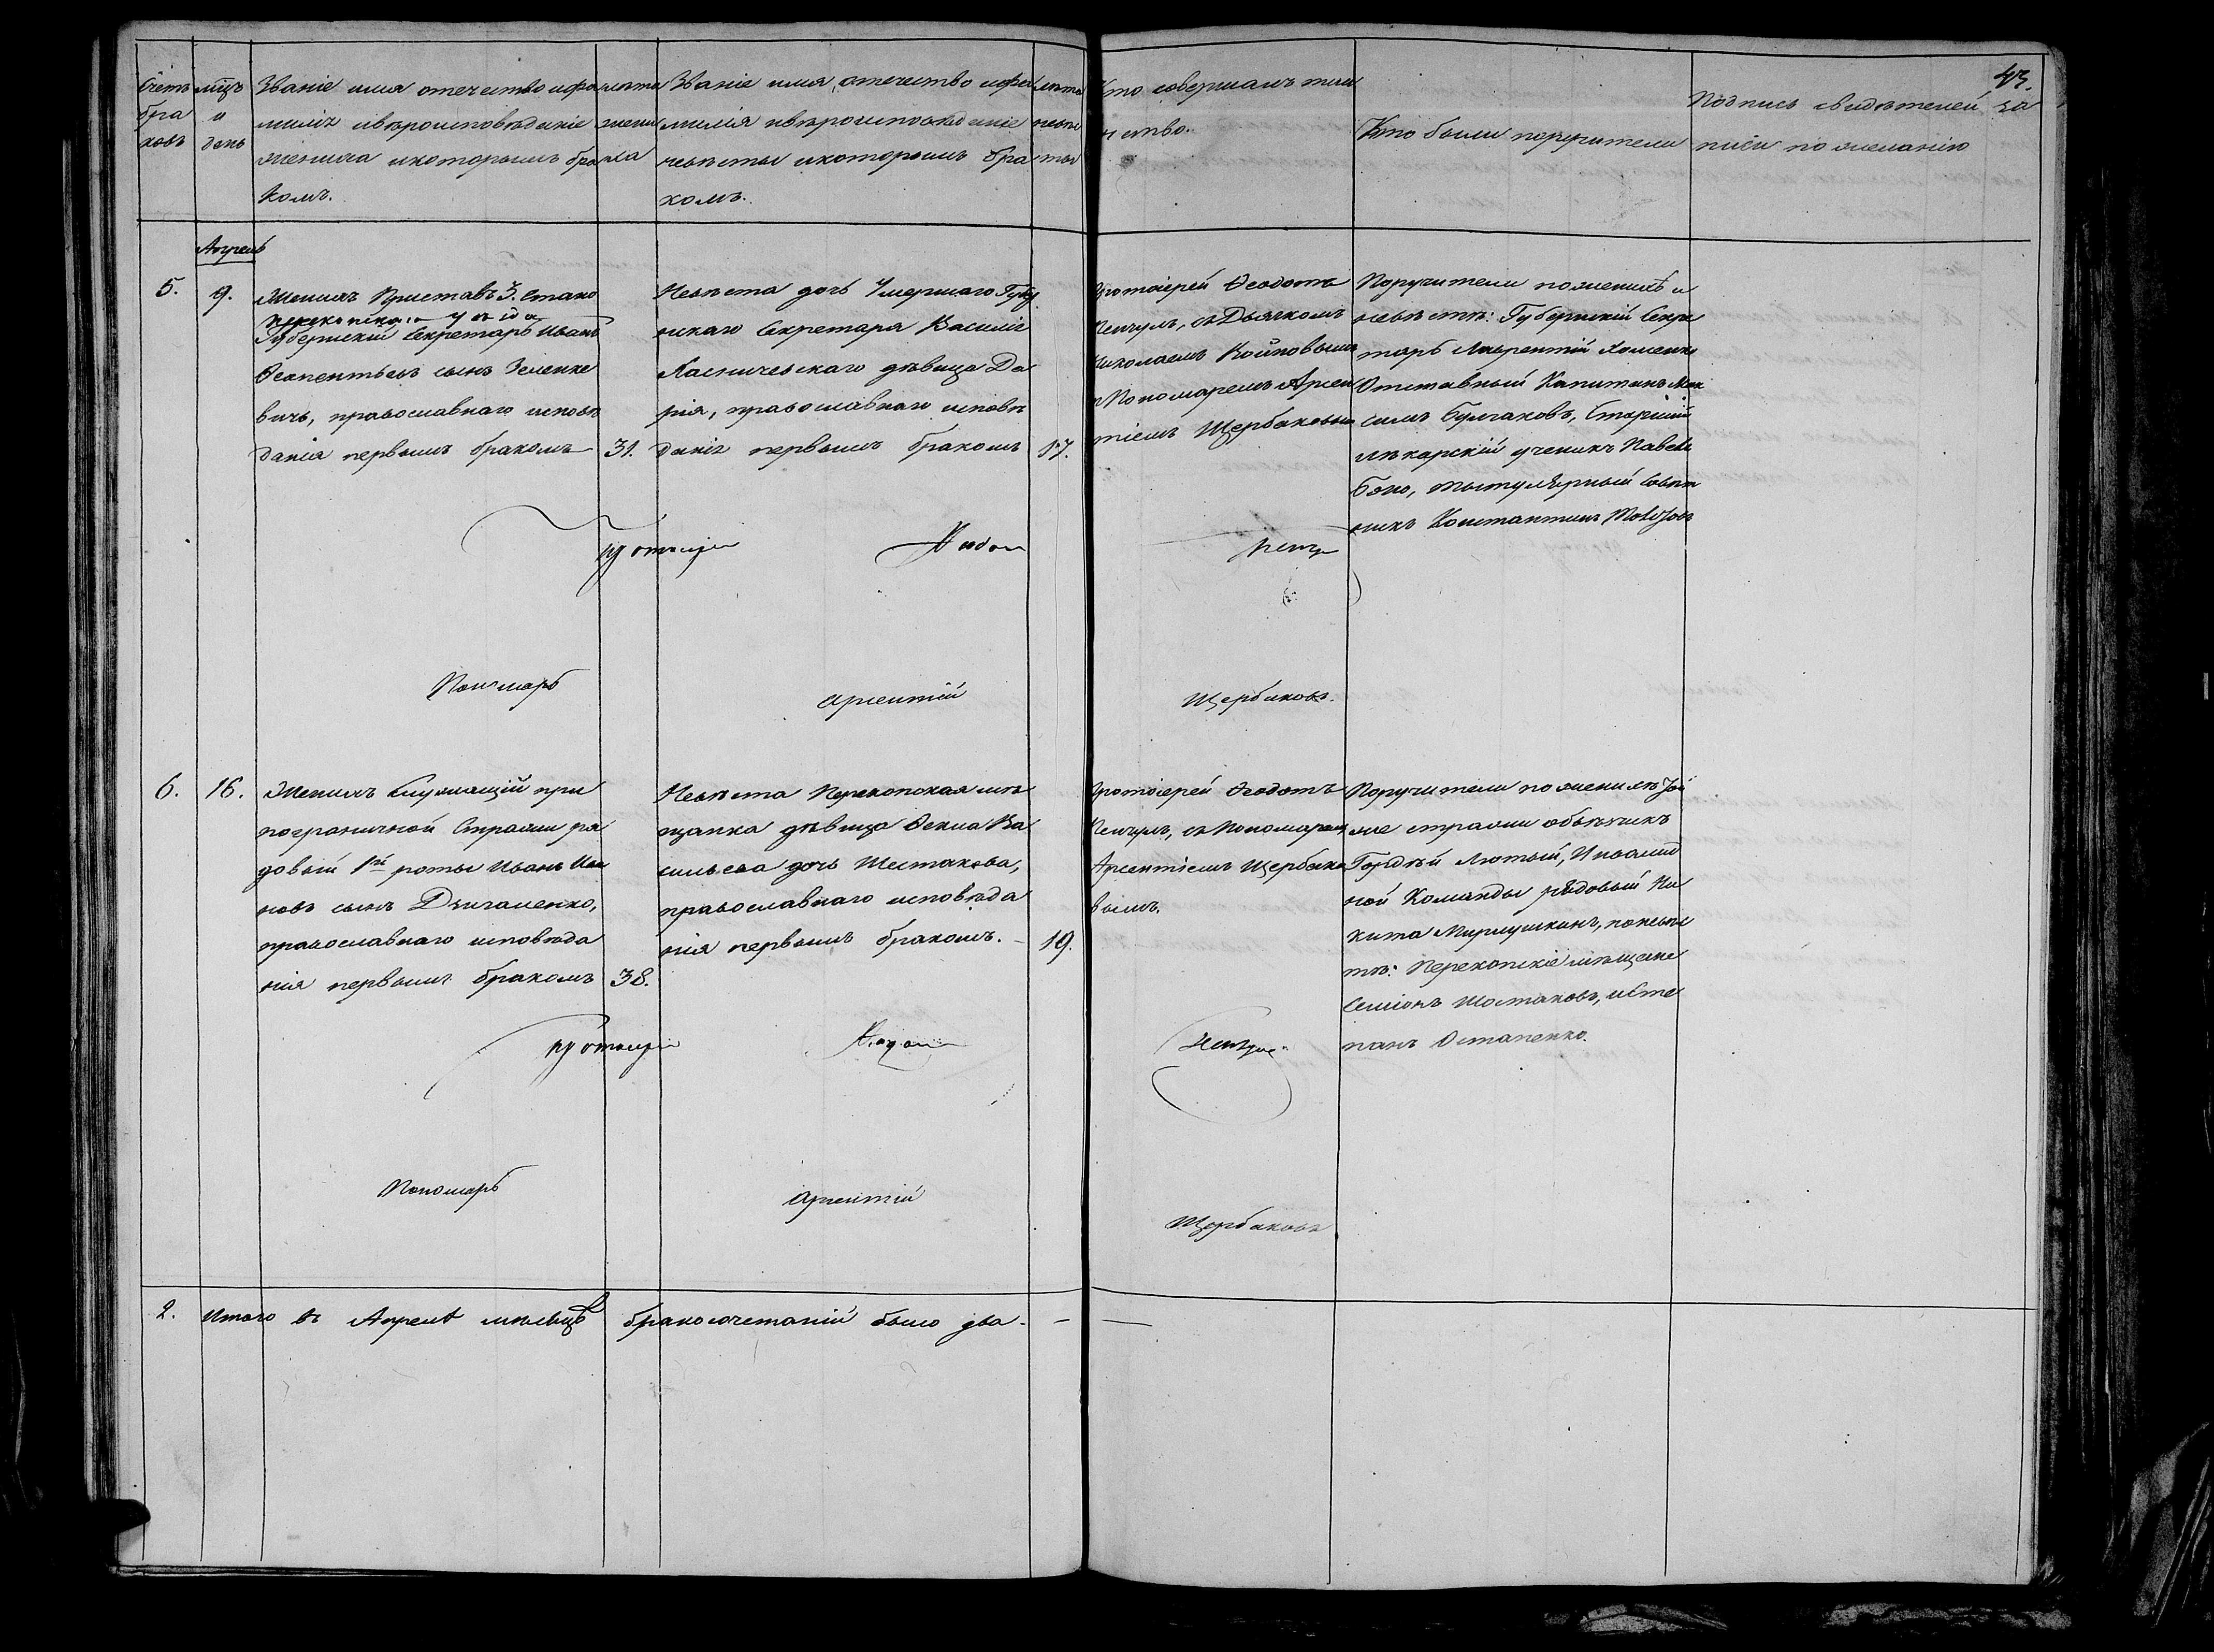 43.
Счетъ бра ковъ
мцъ и день
Званіе имя отечество и фа
миліz и вѣроисповѣданіе
жениха и которымъ бра
комъ.
лѣта жени ха
Званіе имя, отечество и фа
милія и вѣроисповѣданіе
невѣсты и которымъ бра
комъ.
лѣта невѣ сты
Кто совершалъ таи
нство.
Кто были поручители
Подпись свидѣтелей за
писи по желанію
Апрель
5.
9.
Женихъ Приставъ 3. Стана
Перекопскаго уѣзда
Губернскій Секретарь Иванъ
сынъ Зеленке
вичь, православнаго исповѣ
данія первымъ бракомъ
31.
Невѣста дочь Умершаго Губер
нскаго Секретаря Василія
девица Да
рія, православнаго исповѣ
данія первымъ бракомъ
17.
Протоіерей Ѳеодотъ
съ Дьячкомъ
Николаемъ Войновымъ
и Пономаремъ Арсен
тіемъ Щербаковым
Поручители по женихѣ и
невѣстѣ: Губернскій Секре
тарь Лаврентій Хоменко
Отставный Капитанъ Мак
симъ Булгаковъ, Старшій
лѣкарскій ученикъ Павелъ
титулярный Совѣт
никъ Константинъ
Протоіерей
Пономарь
Арсентій
Щербаковъ.
6.
16.
Женихъ Служащій при
пограничной Стражи ря
довый 1й роты Иванъ Ива
новъ сынъ
православнаго исповѣда
нія первымъ бракомъ
38.
Невѣста Перекопская мѣ
щанка дѣвица Ва
сильева дочь Шестакова,
православнаго исповѣда
нія первымъ бракомъ. -
19.
Протоіерей Ѳеодотъ
съ Пономаремъ
Арсентіемъ Щербако
вымъ.
Поручители по женихѣ той
же стражи объѣзчикъ
Гордѣй Лютый, Инвалид
ной Команды рядовый Ни
кита по невѣс
тѣ: Перекопскіе мѣщане
Семіонъ Шостаковъ, и Сте
панъ Остапенко.
Протоіерей
Пономарь
Арсентій
Щербаковъ
2.
Итого въ Апрелѣ мѣсяцѣ бракосочетаній было два -